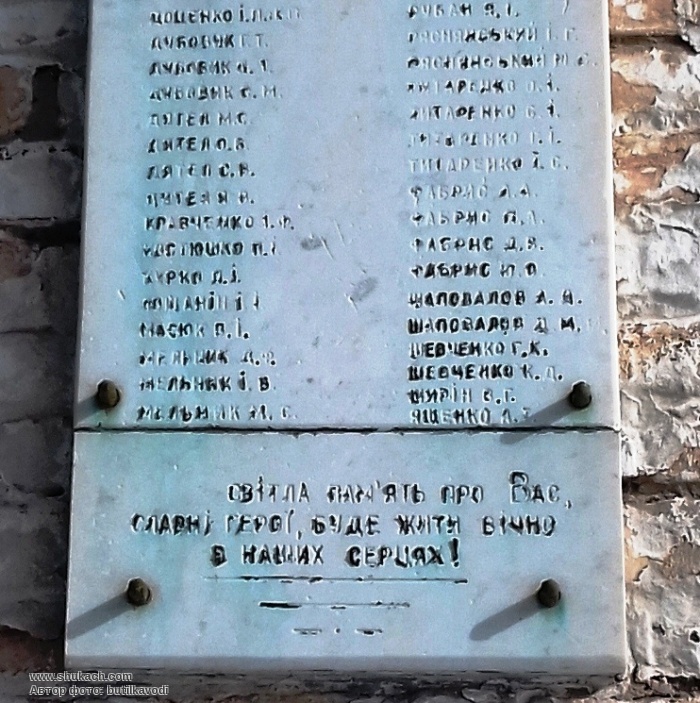 ДОЦЕНКО І.
ДУБОВИК Г.Т.
ДУБОВИК
ДУБОВИК С.М.
ДЯТЕЛ М.С.
ДЯТЕЛ О.В.
ДЯТЕЛ С.Я.
КРАВЧЕНКО І.Ф.
КОСТЮШКО П.І.
КУРКО Д.І.
МАСЮК П.І.
МЕЛЬНИК
МЕЛЬНИК І.В.
МЕЛЬНИК М.С.
РУБАН Я.І.
РЯСНЯНСЬКИЙ І.Г.
РЯСНЯНСЬКИЙ
ТИТАРЕНКО
ТИТАРЕНКО
ТИТАРЕНКО
ТИТАРЕНКО І.С.
ФАБРИС А.А.
ФАБРИС П.А.
ФАБРИС Д.В.
ФАБРИС
ШАПОВАЛОВ А.
ШАПОВАЛОВ Д.М.
ШЕВЧЕНКО Г.К.
ШЕВЧЕНКО К.Д.
ШУРІН С.Г.
ЯЩЕНКО
СВІТЛА ПАМ'ЯТЬ ПРО ВАС,
СЛАВНІ ГЕРОЇ, БУДЕ ЖИТИ ВІЧНО
В НАШИХ СЕРЦЯХ!
www.shukach.com
Автор фото: butilkavodi